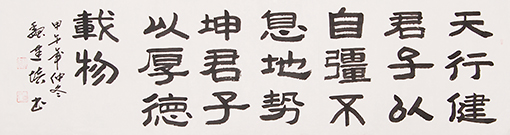 天行健
君子以
自彊不
息地勢
坤君子
以厚德
載物
甲午年仲冬
魏建培书